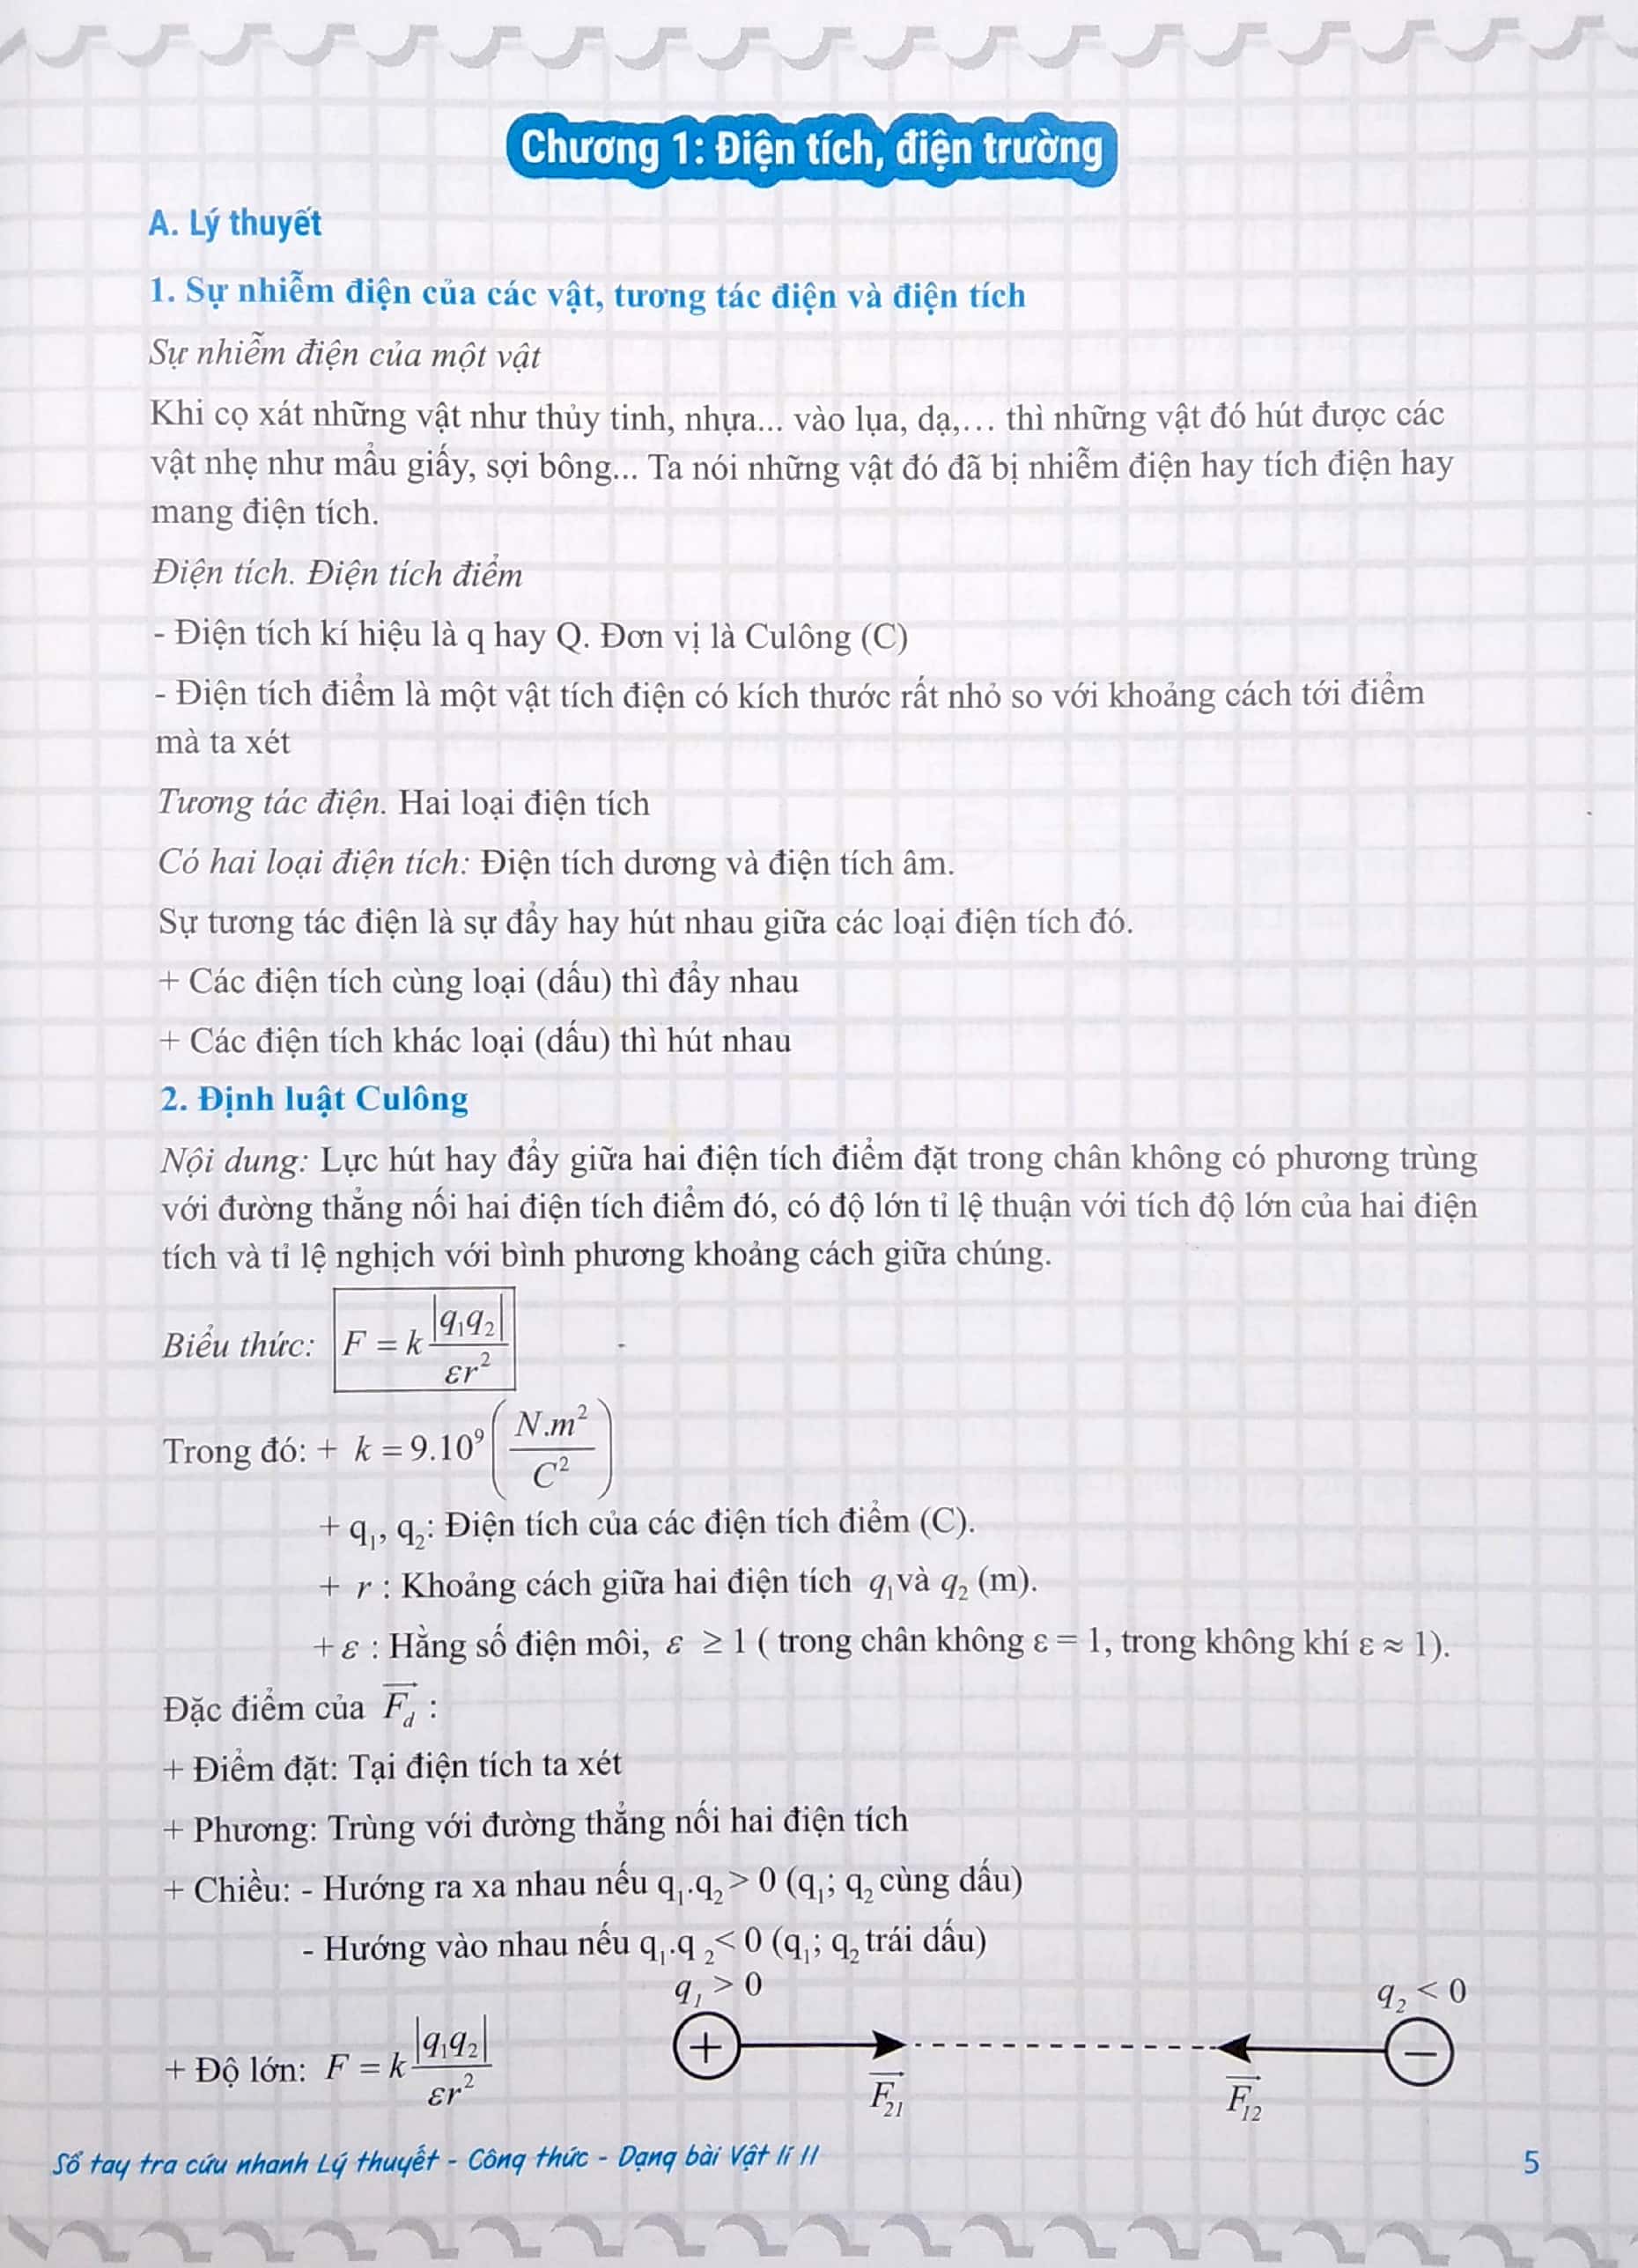 Chương 1: Điện tích, điện trường
A. Lý thuyết
1. Sự nhiễm điện của các vật, tương tác điện và điện tích
Sự nhiễm điện của một vật
Khi cọ xát những vật như thủy tinh, nhựa... vào lụa, dạ,... thì những vật đó hút được các
vật nhẹ như mẩu giấy, sợi bông... Ta nói những vật đó đã bị nhiễm điện hay tích điện hay
mang điện tích.
Điện tích. Điện tích điểm
- Điện tích kí hiệu là q hay Q. Đơn vị là Culông (C)
- Điện tích điểm là một vật tích điện có kích thước rất nhỏ so với khoảng cách tới điểm
mà ta xét
Tương tác điện. Hai loại điện tích
Có hai loại điện tích: Điện tích dương và điện tích âm.
Sự tương tác điện là sự đẩy hay hút nhau giữa các loại điện tích đó.
+ Các điện tích cùng loại (dấu) thì đẩy nhau
+ Các điện tích khác loại (dấu) thì hút nhau
2. Định luật Culông
Nội dung: Lực hút hay đẩy giữa hai điện tích điểm đặt trong chân không có phương trùng
với đường thẳng nối hai điện tích điểm đó, có độ lớn tỉ lệ thuận với tích độ lớn của hai điện
tích và tỉ lệ nghịch với bình phương khoảng cách giữa chúng.
Biểu thức: F = k |q₁q₂| / εr²
Trong đó: + k = 9.10⁹ (N.m² / C²)
+ q₁, q₂: Điện tích của các điện tích điểm (C).
+ r : Khoảng cách giữa hai điện tích q₁ và q₂ (m).
+ ε : Hằng số điện môi, ε ≥ 1 ( trong chân không ε = 1, trong không khí ε ≈ 1).
Đặc điểm của F⃗d :
+ Điểm đặt: Tại điện tích ta xét
+ Phương: Trùng với đường thẳng nối hai điện tích
+ Chiều: - Hướng ra xa nhau nếu q₁.q₂ > 0 (q₁; q₂ cùng dấu)
- Hướng vào nhau nếu q₁.q ₂< 0 (q₁; q₂ trái dấu)
q₁ > 0
q₂ < 0
+ Độ lớn: F = k |q₁q₂| / εr²
+
−
F⃗₂₁
F⃗₁₂
Sổ tay tra cứu nhanh Lý thuyết - Công thức - Dạng bài Vật lí 11
5